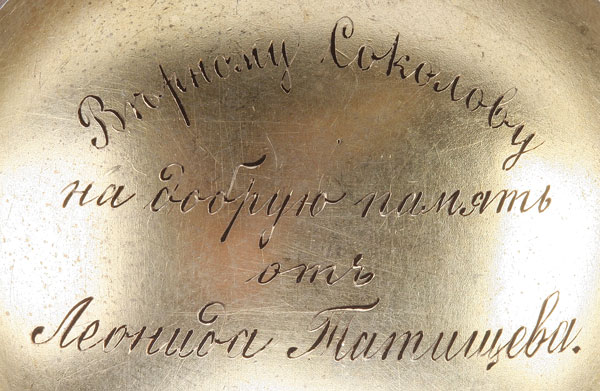 Вѣрному Соколову
на добрую память
отъ
Леонида Татищева.